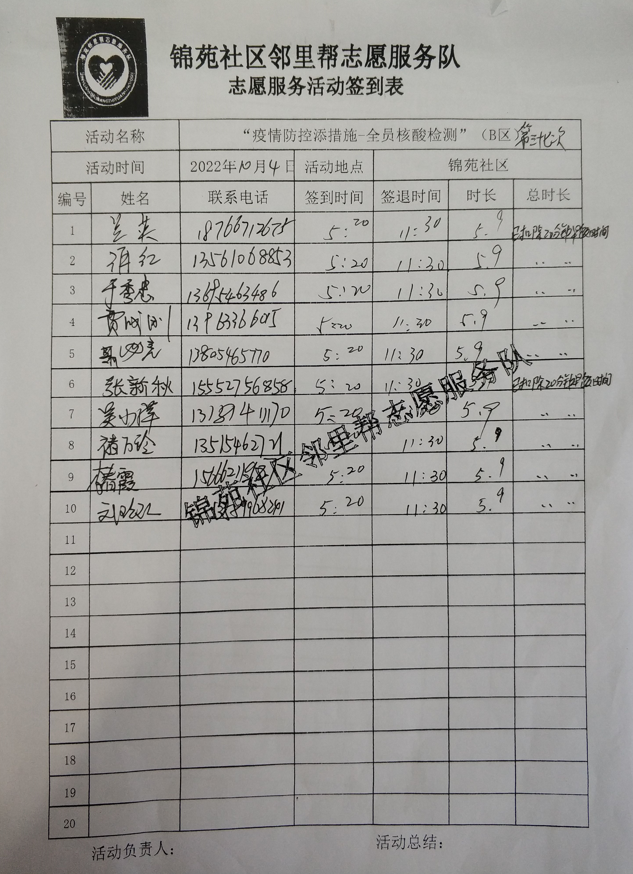 锦苑社区邻里帮志愿服务队
志愿服务活动签到表
活动名称 “疫情防控添措施-全员核酸检测”（B区）第三十七次
活动时间 2022年10月4日 活动地点 锦苑社区
编号 姓名 联系电话 签到时间 签退时间 时长 总时长
1 18766712675 5:20 11:30 5.9 已扣除20分钟早饭时间
2 红 13561068853 5:20 11:30 5.9 〃 〃
3 于季忠 13695463486 5:20 11:30 5.9 〃 〃
4 5:20 11:30 5.9 〃 〃
5 13805465770 5:20 11:30 5.9 〃 〃
6 张新秋 15552756858 5:20 11:30 已扣除20分钟早饭时间
7 吴小萍 5:20 5.9 〃 〃
8 褚方玲 13515462721 11:30 5.9 〃 〃
9 霞 5:20 11:30 5.9 〃 〃
10 5:20 11:30 5.9 〃 〃
锦苑社区邻里帮志愿服务队
11
12
13
14
15
16
17
18
19
20
活动负责人： 活动总结：